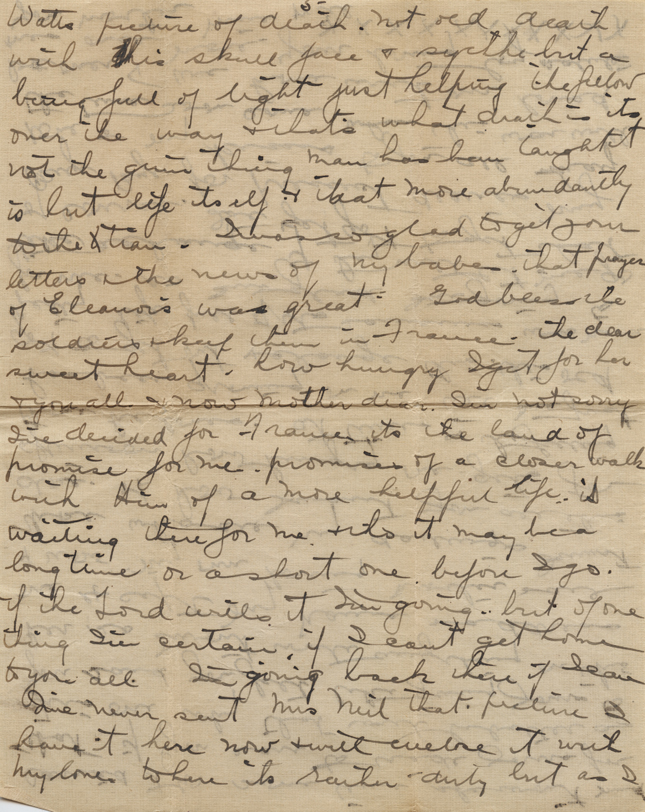 5
Watts picture of death. not old death
with his skull face & scythe but a
being full of light just helping the fellow
over the way & that's what death is its
not the grim thing man has been taught it
is but life itself & that more abundantly
to the Xtian. I was so glad to get your
letters & the news of my babe. that prayer
of Eleanors was great. God bless the
soldiers & keep them in France. the dear
sweet heart. how hungry I get for her
& you all & now Mother dear. I'm not sorry
I've decided for France. its the land of
promise for me. promises of a closer walk
with Him of a more helpful life. is
waiting there for me. & its it may be a
long time or a short one before I go.
if the Lord wills it I'm going. but of one
thing I'm certain, if I can't get home
to you all I'm going back there if I can
I've never sent Mrs Neil that picture I
have it here now & will enclose it with
my love to her its rather dirty but as I